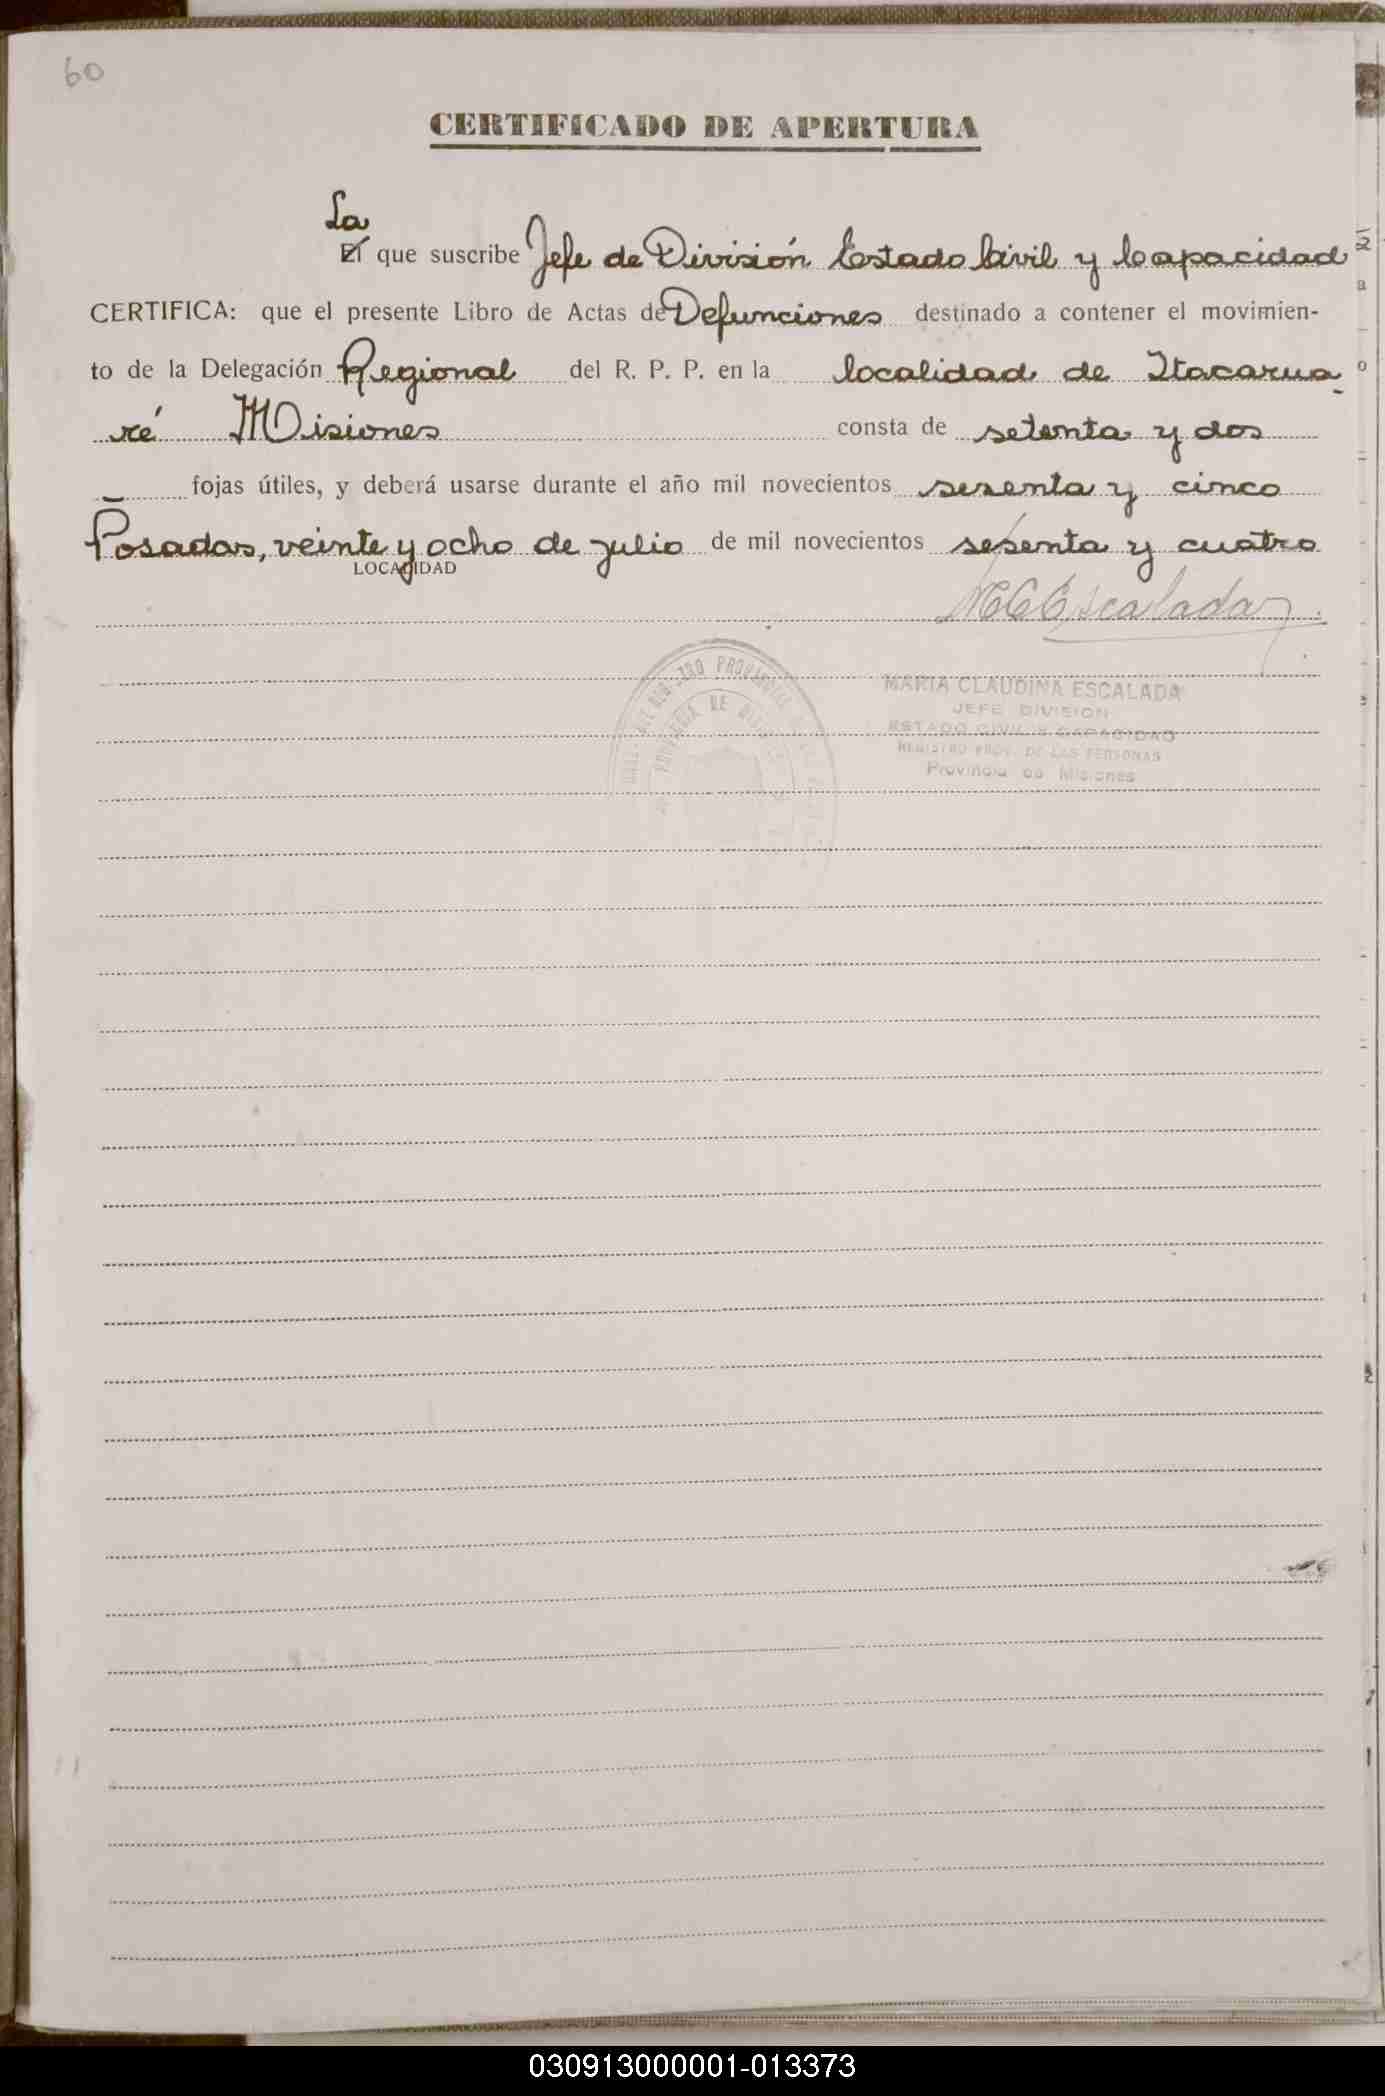 60
CERTIFICADO DE APERTURA
La
El que suscribe Jefe de División Estado Civil y Capacidad
CERTIFICA: que el presente Libro de Actas de Defunciones destinado a contener el movimien-
to de la Delegación Regional del R. P. P. en la localidad de Itacarua-
ré Misiones consta de setenta y dos
fojas útiles, y deberá usarse durante el año mil novecientos sesenta y cinco
Posadas, veinte y ocho de julio de mil novecientos sesenta y cuatro
LOCALIDAD
MCEscalada
MARIA CLAUDINA ESCALADA
JEFE DIVISION
ESTADO CIVIL Y CAPACIDAD
REGISTRO PROV. DE LAS PERSONAS
Provincia de Misiones
REGISTRO PROVINCIAL
PROVINCIA DE
030913000001-013373